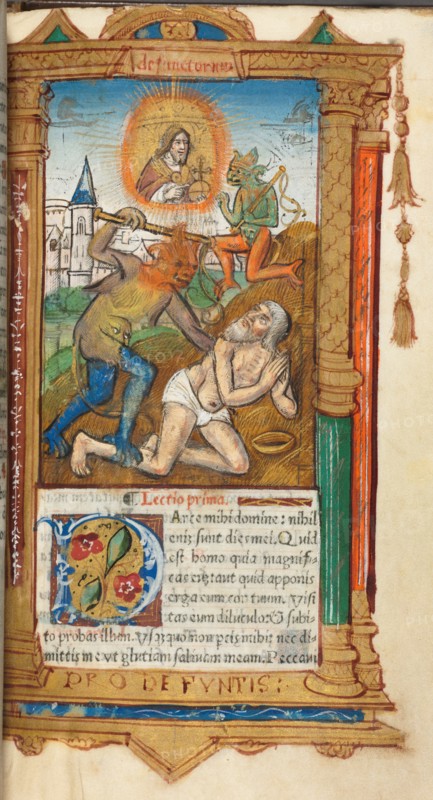 defunctorum
Lectio prima.
Parce mihi domine: nihil
enim sunt dies mei. Quid
est homo quia magnifi-
cas eum: aut quid apponis
erga eum cor tuum. Visi
tas eum diluculo & subi-
to probas illum. Usquequo non parcis mihi: nec di-
mittis me ut glutiam salivam meam. Peccavi
PRO DEFVNTIS: